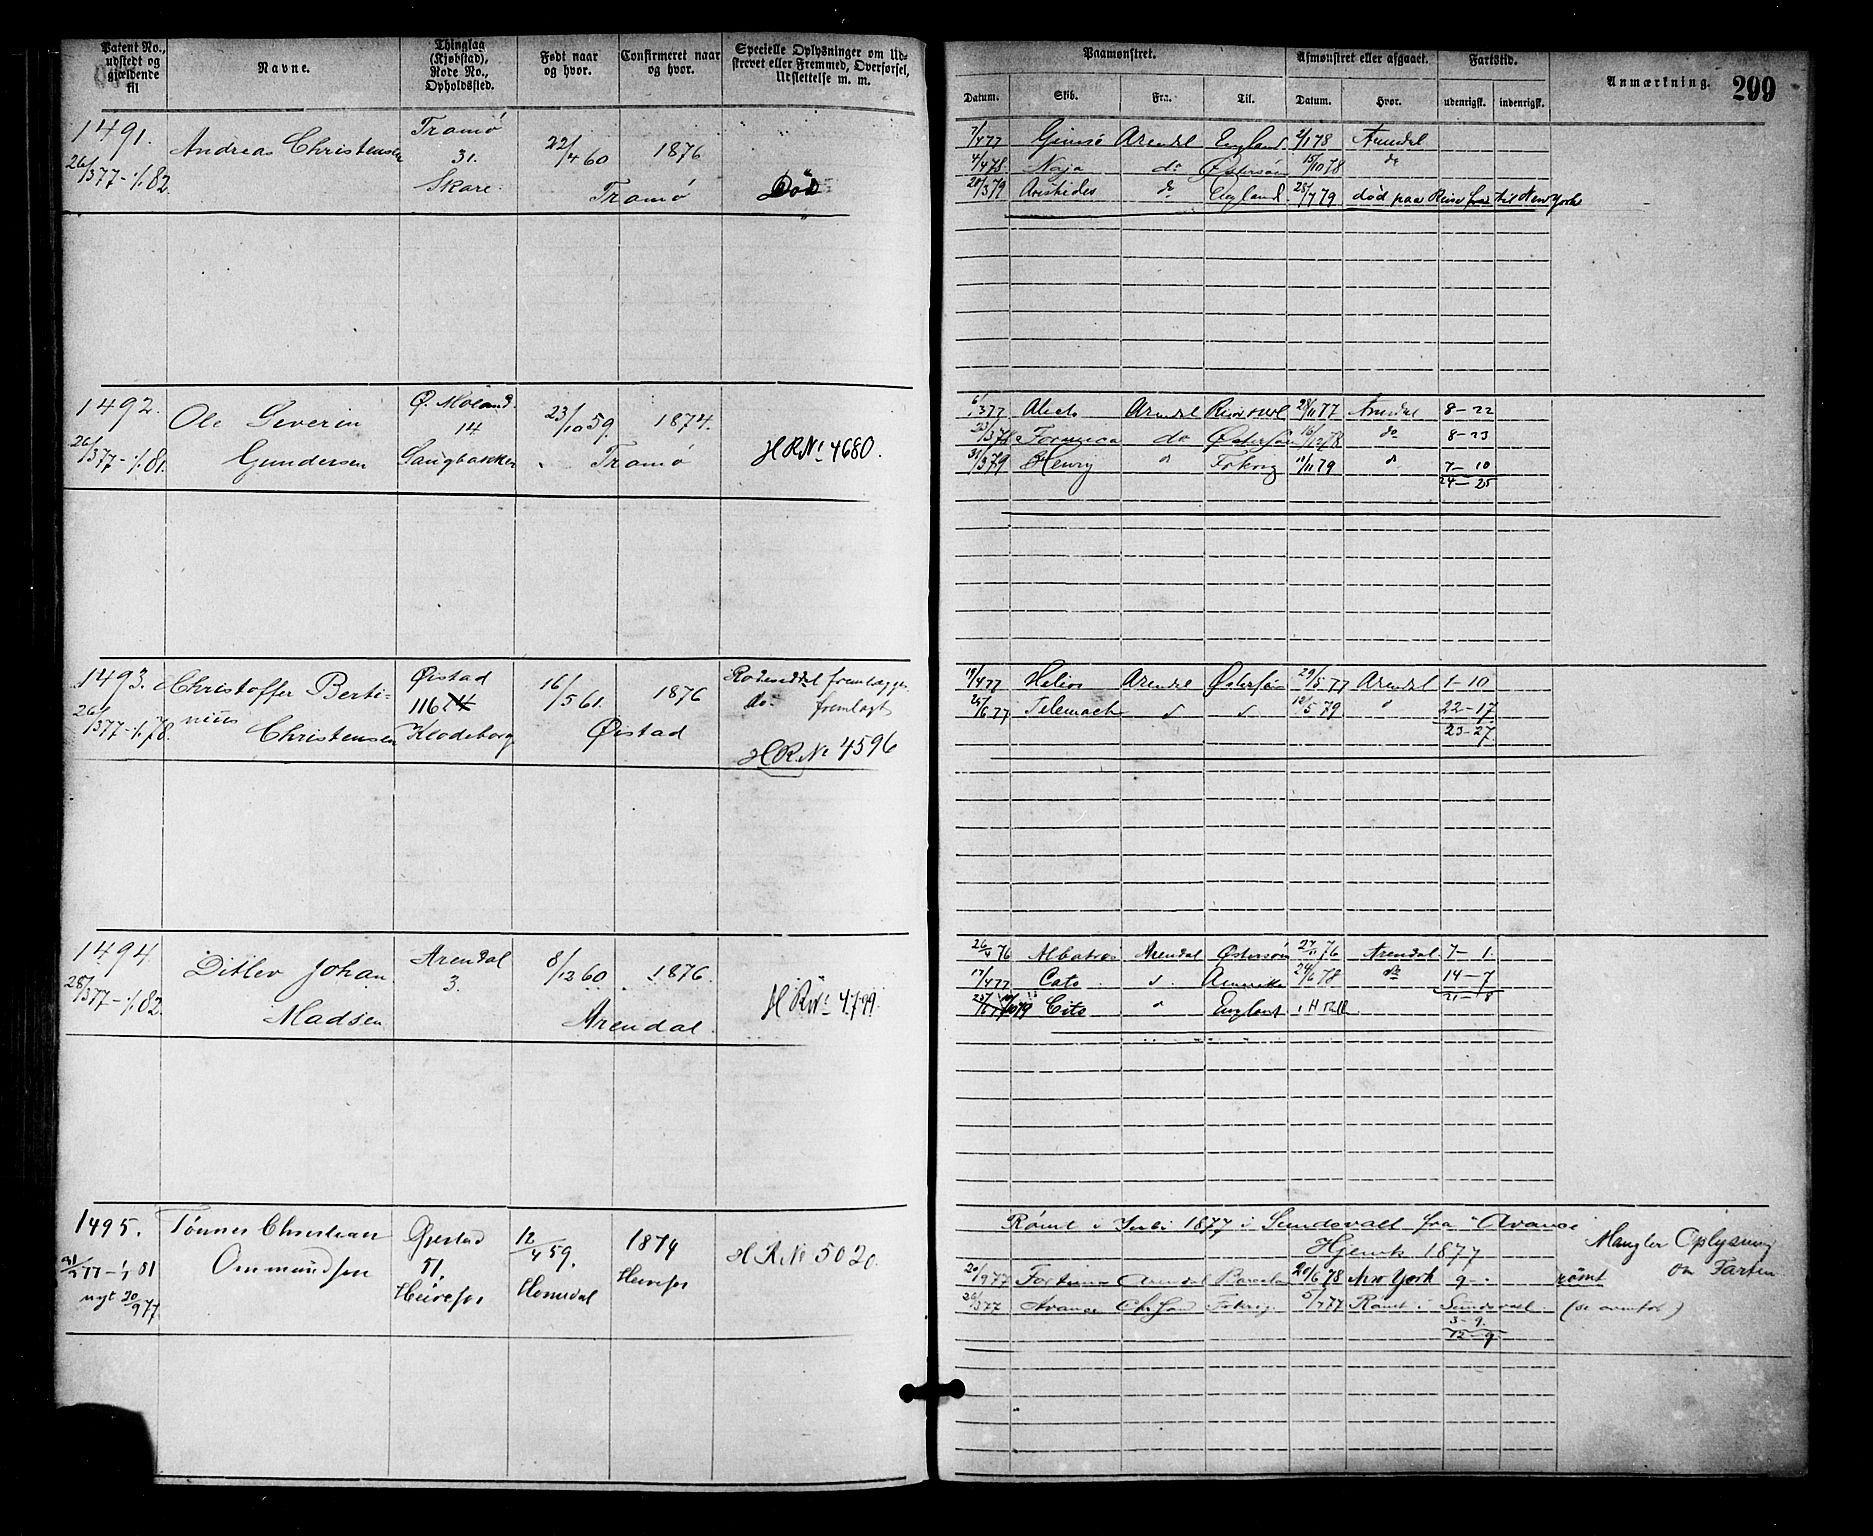 Patent No., udstedt og gjældende til
Navne.
Thinglag (Kjøbstad), Rode No., Opholdssted.
Født naar og hvor.
Confirmeret naar og hvor.
Specielle Oplysninger om Udskrevet eller Fremmed, Overførsel, Udslettelse m. m.
Paamønstret.
Datum. Skib. Fra. Til.
Afmønstret eller afgaaet.
Datum. Hvor.
Fartstid.
udenrigsk. indenrigsk.
Anmærkning.
299
1491. Andreas Christensen Tromø 22/4 60 1876
26/3 77 - 1/1 82. 31. Skare. Tromø Død
7/4 77 Arendal England 2/1 78 Arendal
4/4 78. Naja do Østersøen 15/10 78 do
20/3 79 Aristides do England 25/7 79 død paa Reise fra til New York
1492. Ole Severin Ø. Moland 23/10 59. 1874.
26/3 77 - 1/1 81. Gundersen 14. Tromø H R No 4680.
6/3 77 Alecto Arendal 28/11 77 Arendal 8 - 22
23/3 78 Formica do Østersøen 16/12 78 do 8 - 23
31/3 79 Henry d 11/11 79 d 7 - 10
24 - 25
1493. Christoffer Bertinius Øistad 16/5 61. 1876 Rodeseddel fremlægges
26/3 77 - 1/1 78. Christensen 116 Klodeborg Øistad do. fremlagt
H R. No 4596
18/4 77 Helios Arendal Østersøen 29/5 77 Arendal 1 - 10
25/6 77 Telemach d d 12/5 79 d 22 - 17
23 - 27.
1494 Ditlev Johan Arendal 8/12 60 1876.
28/3 77 - 1/1 82. Madsen 3. Arendal. H R No 4799.
26/4 76 Albatros Arendal Østersøen 27/11 76 Arendal. 7 - 1.
17/4 77 Cato d. Amerika 24/6 78 do 14 - 7
21 - 8
Cito d England
1495. Tønnes Christian Øiestad 12/4 59. 1874 H R. No 5020.
Ommundsen 51.
nyt 20/9 77 Homedal
Rømt i Juli 1877 i Sundsvall fra "Avance"
Hjemk 1877
Mangler Oplysning om Farten
20/9 77 Fortuna Arendal 20/6 78 New York 9 - rømt
26/3 77 Avance 5/7 77 Rømt i Sundsvall (se ovenfor)
3 - 9.
12 - 9